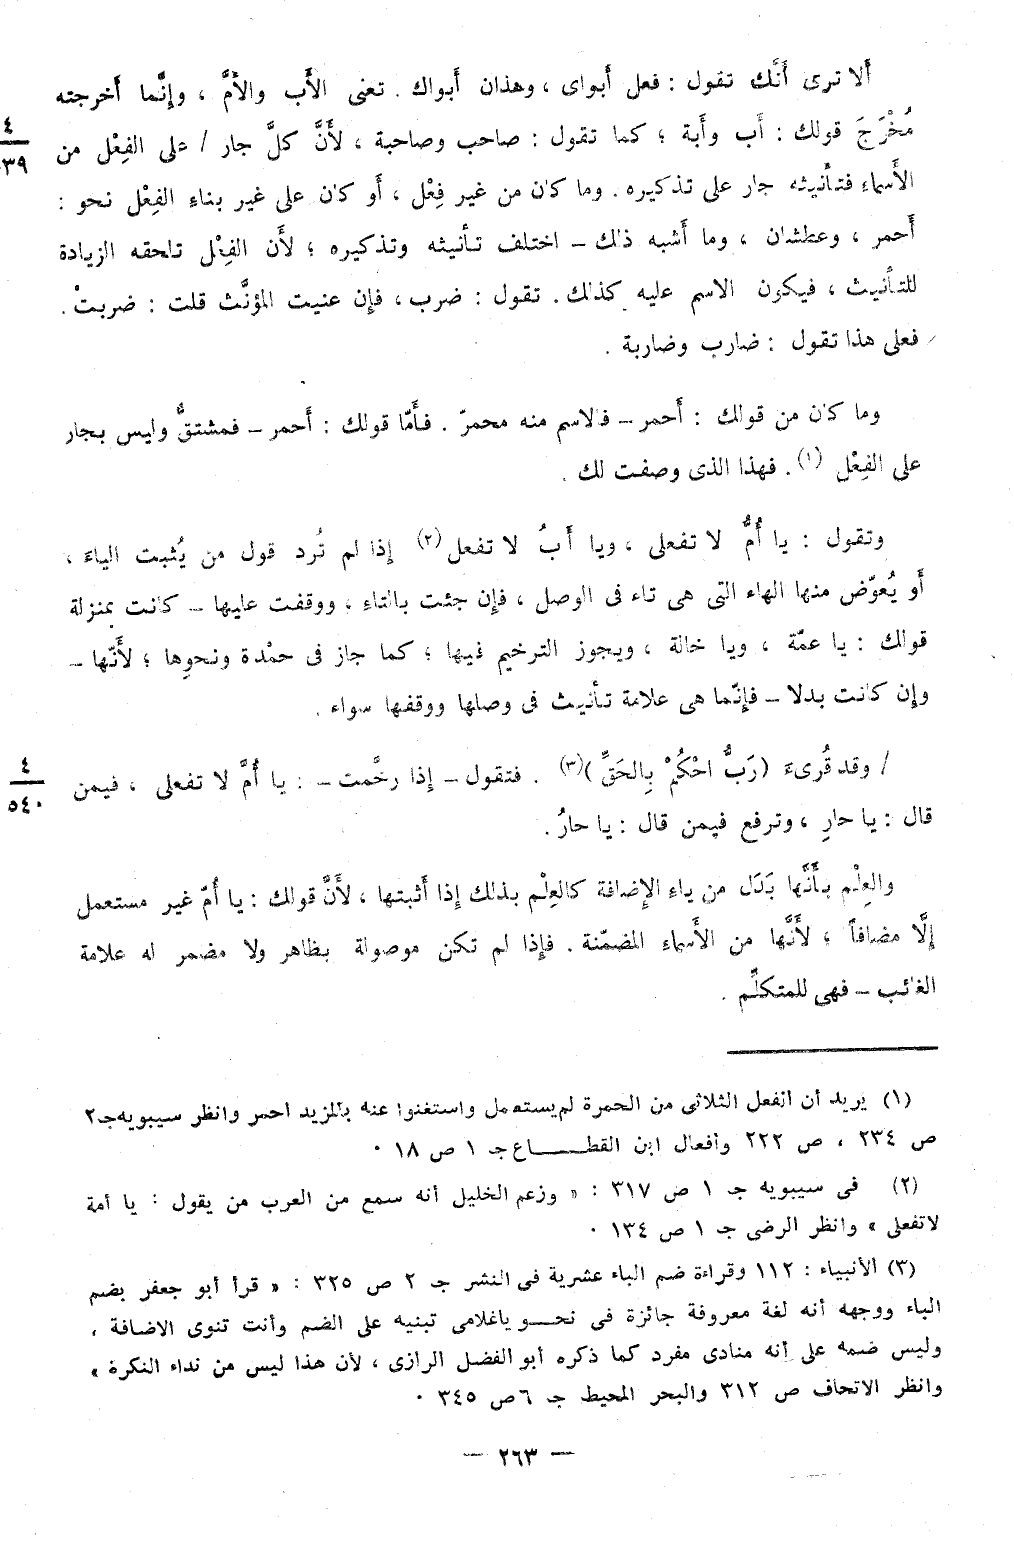 ألا ترى أَنَّك تقول : فعل أَبواى ، وهذان أَبواك . تعنى الأَب والأُمَّ ، وإنَّما أخرجته
٤
٣٩
مُخْرَجَ قولك : أَب وأَبة ؛ كما تقول : صاحب وصاحبة ، لأَنَّ كلَّ جار / على الفِعْل من
الأَسماء فتأنيثه جار على تذكيره . وما كان من غير فِعْل ، أو كان على غير بناءِ الفِعْل نحو :
أَحمر ، وعطشان ، وما أَشبه ذلك – اختلف تأنيثه وتذكيره ؛ لأَن الفِعْل تلحقه الزيادة
للتأنيث ، فيكون الاسم عليه كذلك . تقول : ضرب ، فإن عنيت المؤنَّث قلت : ضربتْ .
فعلى هذا تقول : ضارب وضاربة .
وما كان من قولك : أَحمر – فالاسم منه محمرّ . فأَمّا قولك : أَحمر – فمشتقٌّ وليس بجار
على الفِعْل (١) . فهذا الذى وصفت لك .
وتقول : يا أُمُّ لا تفعلى ، ويا أَبُ لا تفعل (٢) إذا لم تُرد قول من يُثبت الياءَ ،
أَو يُعوّض منها الهاء التى هى تاء فى الوصل ، فإن جئت بالتاء ، ووقفت عليها – كانت بمنزلة
قولك : يا عمّة ، ويا خالة ، ويجوز الترخيم فيها ؛ كما جاز فى حمْدة ونحوِها ؛ لأَنّها –
وإن كانت بدلا – فإنّما هى علامة تأنيث فى وصلها ووقفها سواء .
/ وقد قُرىءَ (رَبُّ احْكُمْ بِالحَقِّ)(٣) . فتقول – إذا رخَّمت – : يا أُمَّ لا تفعلى ، فيمن
٤
٥٤٠
قال : يا حارِ ، وترفع فيمن قال : يا حارُ .
والعِلْم بأَنَّها بَدَل من ياءِ الإضافة كالعِلْم بذلك إذا أَثبتها ، لأَنَّ قولك : يا أُمّ غير مستعمل
إلَّا مضافاً ؛ لأَنَّها من الأَسماء المضمّنة . فإذا لم تكن موصولة بظاهر ولا مضمر له علامة
الغائب – فهى للمتكلِّم .
(١) يريد أن الفعل الثلاثى من الحمرة لم يستعمل واستغنوا عنه بالمزيد احمر وانظر سيبويه جـ ٢
ص ٢٣٤ ، ص ٢٢٢ وأفعال ابن القطــــاع جـ ١ ص ١٨ ٠
(٢) فى سيبويه جـ ١ ص ٣١٧ : « وزعم الخليل أنه سمع من العرب من يقول : يا أمة
لاتفعلى » وانظر الرضى جـ ١ ص ١٣٤ ٠
(٣) الأنبياء : ١١٢ وقراءة ضم الباء عشرية فى النشر جـ ٢ ص ٣٢٥ : « قرأ أبو جعفر بضم
الباء ووجهه أنه لغة معروفة جائزة فى نحــو ياغلامى تبنيه على الضم وأنت تنوى الاضافة ،
وليس ضمه على أنه منادى مفرد كما ذكره أبو الفضل الرازى ، لأن هذا ليس من نداء النكرة »
وانظر الاتحاف ص ٣١٢ والبحر المحيط جـ ٦ ص ٣٤٥ ٠
– ٢٦٣ –